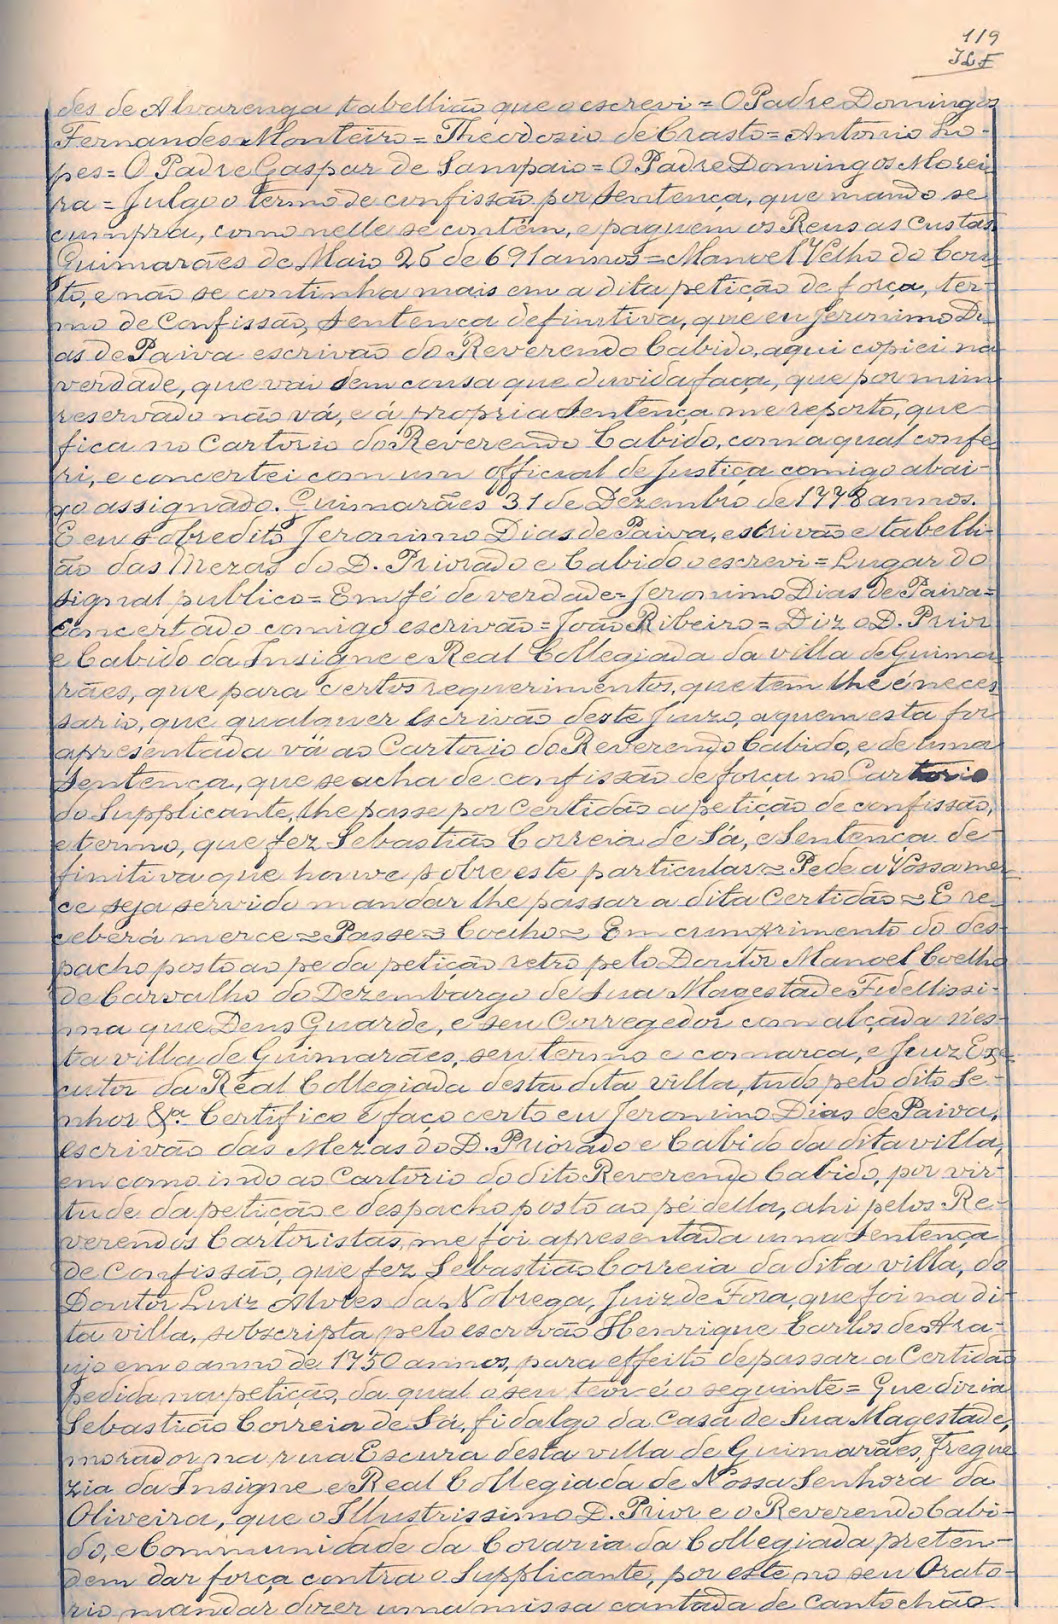 119
des de Alvarenga tabellião que o escrevi = O Padre Domingos
Fernandes Monteiro = Theodozio de Crasto = Antonio Lo-
pes = O Padre Gaspar de Sampaio = O Padre Domingos Morei-
ra = Julgo o termo de confissão por Sentença, que mando se
cumpra, como nelle se contêm, e paguem os Reus as Custas
Guimarães de Maio 26 de 691 annos = Manoel Velho do Cou-
to, e não se continha mais em a dita petição de força, ter-
mo de Confissão, Sentença definitiva, que eu Jeronimo Di-
as de Paiva escrivão do Reverendo Cabido, aqui copiei na
verdade, que vai sem cousa que duvida faça, que por mim
reservado não vá, e á propria Sentença me reporto, que
fica no Cartorio do Reverendo Cabido, com a qual confe-
ri, e concertei com um official de Justiça comigo abai-
xo assignado. Guimarães 31 de Dezembro de 1778 annos.
E eu sobredito Jeronimo Dias de Paiva, escrivão e tabelli-
ão das Mezas do D. Priorado e Cabido o escrevi = Lugar do
signal publico = Em fé de verdade = Jeronimo Dias de Paiva =
Concertado comigo escrivão = João Ribeiro = Diz o D. Prior
e Cabido da Insigne e Real Collegiada da villa de Guima-
rães, que para certos requerimentos, que tem lhe é neces-
sario, que qualquer Escrivão deste Juizo, a quem esta for
apresentada vá ao Cartorio do Reverendo Cabido, e de uma
Sentença, que se acha de confissão de força no Cartorio
do Supplicante, lhe passe por Certidão a petição de confissão,
e termo, que fez Sebastião Correia de Sá, e Sentença de-
finitiva que houve sobre este particular = Pede a Vossa mer-
ce seja servido mandar lhe passar a dita Certidão = E re-
ceberá merce = Passe = Coelho = Em cumprimento do des-
pacho posto ao pe da petição retro pelo Doutor Manoel Coelho
de Carvalho do Dezembargo de Sua Magestade Fidellissi-
ma que Deus Guarde, e seu Corregedor com alçada n'es-
ta villa de Guimarães, seu termo e comarca, e Juiz Exe-
cutor da Real Collegiada desta dita villa, tudo pelo dito Se-
nhor &.ª Certifico e faço certo eu Jeronimo Dias de Paiva,
escrivão das Mezas do D. Priorado e Cabido da dita villa,
em como indo ao Cartorio do dito Reverendo Cabido, por vir-
tude da petição e despacho posto ao pé della, ahi pelos Re-
verendos Cartoristas, me foi apresentada uma Sentença
de Confissão, que fez Sebastião Correia da dita villa, do
Doutor Luiz Alves da Nobrega, Juiz de Fora, que foi na di-
ta villa, subscripta pelo escrivão Henrique Carlos de Ara-
ujo em o anno de 1750 annos, para effeito de passar a Certidão
pedida na petição, da qual o seu teor é o seguinte = Que diria
Sebastião Correia de Sá, fidalgo da Casa de Sua Magestade,
morador na rua Escura desta villa de Guimarães, Fregue-
zia da Insigne e Real Collegiada de Nossa Senhora da
Oliveira, que o Illustrissimo D. Prior e o Reverendo Cabi-
do, e Communidade da Coraria da Collegiada preten-
dem dar força contra o Supplicante, por este no seu Orato-
rio mandar dizer uma missa cantada de Cantochão